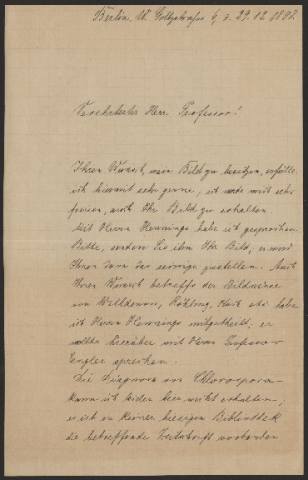 Berlin, W. Goltzstrasse 6, d. 29.12.189
Verehrtester Herr Professor!
Ihren Wunsch, mein Bild zu besitzen, erfülle
ich hiermit sehr gerne, ich werde mich sehr
freuen, auch Ihr Bild zu erhalten.
Mit Herrn Hennings habe ich gesprochen.
Bitte, senden Sie ihm Ihr Bild; er wird
Ihnen dann das seinige zustellen. Auch
Ihren Wunsch betreffs der Bildnisse
von Willdenow, habe
ich Herrn Hennings mitgetheilt; er
wollte hierüber mit Herrn Professor
Engler sprechen.
Die Diagnose von Chlorospora
kann ich leider hier nicht erhalten;
es ist in keiner hiesigen Bibliothek
die betreffende Zeitschrift vorhanden